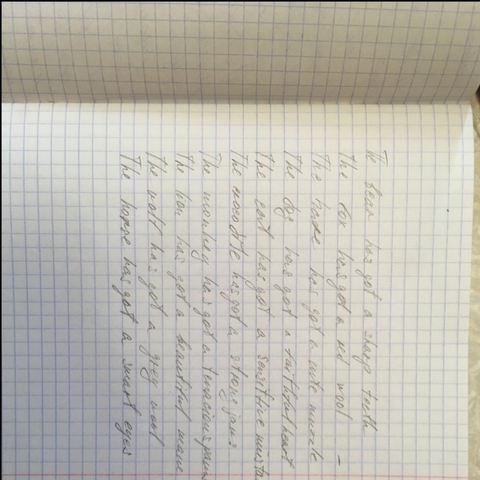 The bear has got a sharp teeth
The fox has got a red wool
The hare has got a cute
The dog has got a faithful heart
The cat has got a sensitive
The has got a strong jaws
The monkey has got a tenacious paws
The lion has got a beautiful mane
The wolf has got a grey wool
The horse has got a smart eyes